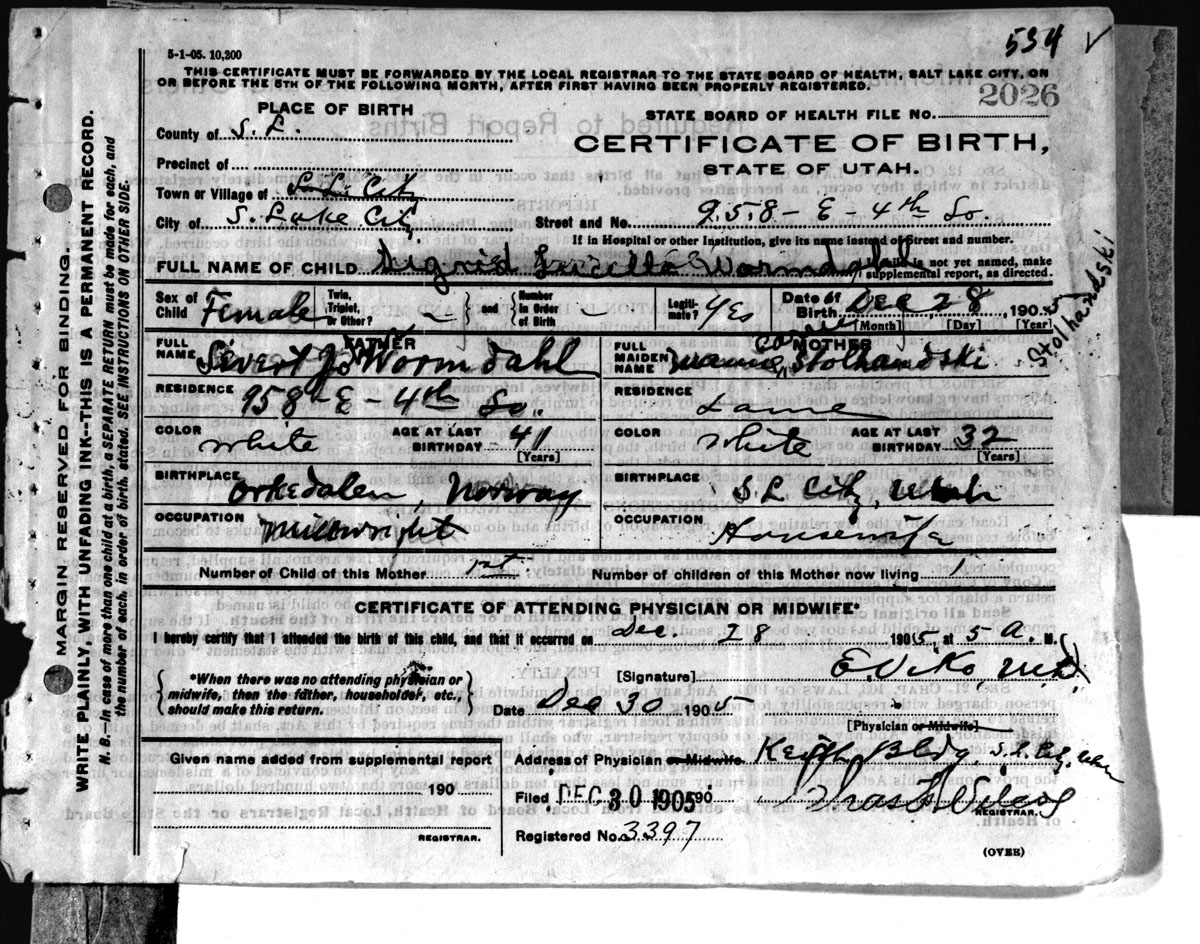 534 V
5-1-05. 10,200
THIS CERTIFICATE MUST BE FORWARDED BY THE LOCAL REGISTRAR TO THE STATE BOARD OF HEALTH, SALT LAKE CITY, ON
OR BEFORE THE 5TH OF THE FOLLOWING MONTH, AFTER FIRST HAVING BEEN PROPERLY REGISTERED.
2026
PLACE OF BIRTH
STATE BOARD OF HEALTH FILE NO.
County of S. L.
CERTIFICATE OF BIRTH,
STATE OF UTAH.
Precinct of
Town or Village of S. L. City
City of S. Lake City Street and No. 958 - E - 4th So.
If in Hospital or other Institution, give its name instead of Street and number.
FULL NAME OF CHILD Sigrid Wormdahl
If child is not yet named, make
supplemental report, as directed.
Sex of Child Female Twin, Triplet, or Other? - and Number in Order of Birth - Legiti-mate? Yes Date of Birth Dec 28 1905
[Month] [Day] [Year]
FATHER
FULL NAME Sivert J. Wormdahl
MOTHER
FULL MAIDEN NAME Stolhandski
Stolhandski
RESIDENCE 958 - E - 4th So.
RESIDENCE Same
COLOR White AGE AT LAST BIRTHDAY 41 [Years]
COLOR White AGE AT LAST BIRTHDAY 32 [Years]
BIRTHPLACE Orkedalen, Norway
BIRTHPLACE S. L City, Utah
OCCUPATION Millwright
OCCUPATION Housewife
Number of Child of this Mother 1st Number of children of this Mother now living 1
CERTIFICATE OF ATTENDING PHYSICIAN OR MIDWIFE*
I hereby certify that I attended the birth of this child, and that it occurred on Dec. 28 1905, at 5 A. M.
*When there was no attending physician or
midwife, then the father, householder, etc.,
should make this return.
[Signature] E. Viko, M.D.
Date Dec 30 1905
[Physician or Midwife]
Given name added from supplemental report
190
REGISTRAR.
Address of Physician or Midwife Keith Bldg, S. L. City, Utah
Filed DEC 30 1905 190
REGISTRAR.
Registered No. 3397
(OVER)
MARGIN RESERVED FOR BINDING.
WRITE PLAINLY, WITH UNFADING INK--THIS IS A PERMANENT RECORD.
N. B.—In case of more than one child at a birth, a SEPARATE RETURN must be made for each, and
the number of each, in order of birth, stated. SEE INSTRUCTIONS ON OTHER SIDE.